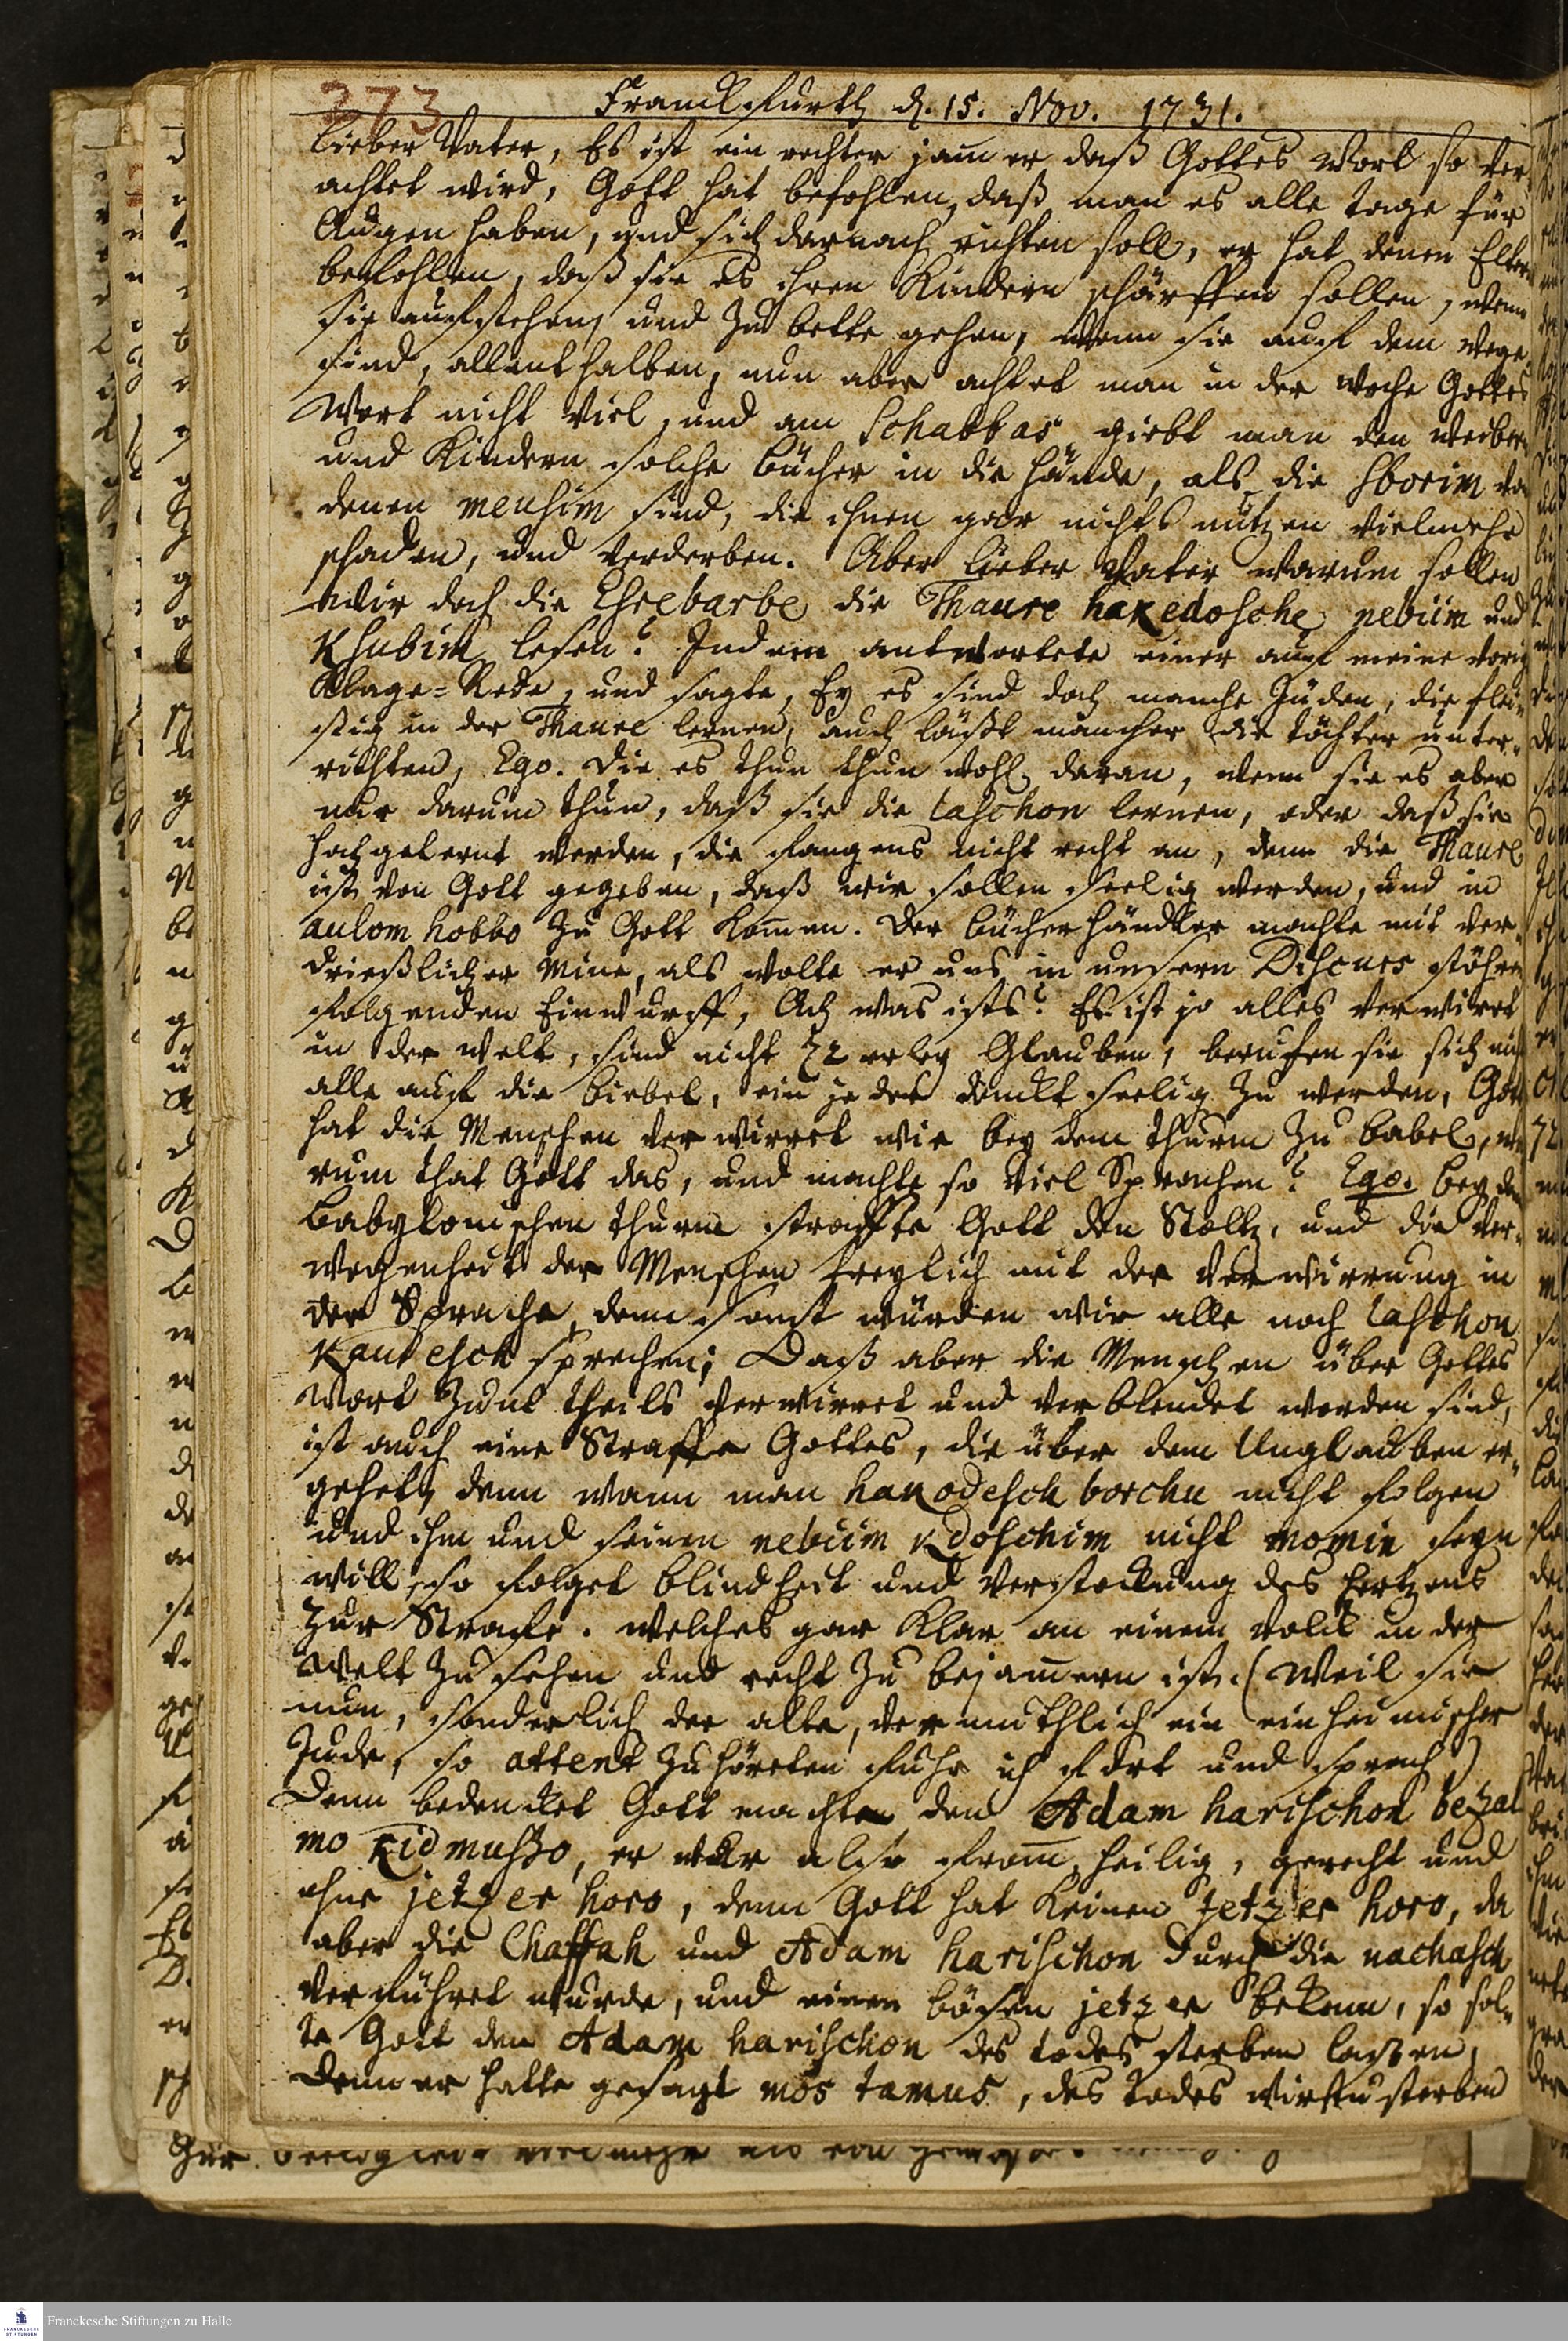 273
Franckfurth d. 15. Nov. 1731.
lieber Vater, Es ist ein rechter jam̅er daß Gottes Wort so ver-
achtet wird, Gott hat befohlen, daß man es alle tage für
Augen haben, und sich darnach richten soll, er hat denen Eltern
befohlen, daß sie es ihren Kindern schärffen sollen, wenn
sie aufstehen, und zu bette gehen, wenn sie auf dem Wege
sind, allenthalben, nun aber achtet man in der woche Gottes
Wort nicht viel, und am Schabbas giebt man den weibern
und Kindern solche bücher in die hände, als die Sborim von
denen meusim sind, die ihnen gar nichts nutzen vielmehr
schaden, und verderben. Aber lieber Vater warum sollen
wir doch die Esrebarbe die Thaure hakedosche nebiim und
Ksubim lesen? Indem antwortete einer auf meine vorig
Klage-Rede, und sagte, Ey es sind doch manche Juden, die flei-
ßig in der Thaure lernen, auch läßt mancher die töchter unter-
richten, Ego. Die es thun thun wohl daran, wenn sie es aber
nur darum thun, daß sie die laschon lernen, oder daß sie
hochgelernt werden, die fangens nicht recht an, denn die Thaure
ist von Gott gegeben, daß wir sollen seelig werden, und in
aulom hobbo zu Gott kom̅en. Der bücherhändler machte mit ver-
drießlicher Mine, als wolte er uns in unsern Discurs stöhren
folgenden Einwurff, Ach was ists? Es ist jo alles verwirret
in der welt, sind nicht 72 erley Glauben, berufen sie sich nicht
alle auf die biebel, ein jeder denckt seelig zu werden, Gott
hat die Menschen verwirret wie bey dem thurm zu babel, wa-
rum that Gott das, und machte so viel Sprachen? Ego. bey dem
babylonischen thurm straffte Gott den Stoltz, und die Ver-
wegenheit der Menschen freylich mit der Verwirrung in
der Sprache, denn sonst würden wir alle noch laschon
Kaudesch sprechen; Daß aber die Menschen über Gottes
Wort theils verwirret und verblendet worden sind,
ist auch eine Straffe Gottes, die über dem Unglauben er-
gehet, denn wann man hakodesch borchu nicht folgen
und ihm und seinen nebiim kdoschim nicht momin seyn
will, so folget blindheit und Verstockung des Hertzens
zur Strafe. welches gar klar an einem Volck in der
Welt zu sehen und recht zu bejam̅ern ist. (Weil sie
nun, sonderlich der alte, vermuthlich ein einheimischer
Jude, so attent zuhöreten fuhr ich fort und sprach)
Denn bedencket Gott machte den Adam harischon bezal
mo kidmusso, er war also from̅, heilig, gerecht und
ohne jetzer horo, denn Gott hat keinen jetzer horo, da
aber die Chaffah und Adam harischon durch die nachasch
verführet wurde, und einen bösen jetzer bekam, so sol-
te Gott den Adam harischon des todes sterben lassen,
denn er hatte gesagt mos tamus, des todes wirstu sterben
Franckesche Stiftungen zu Halle